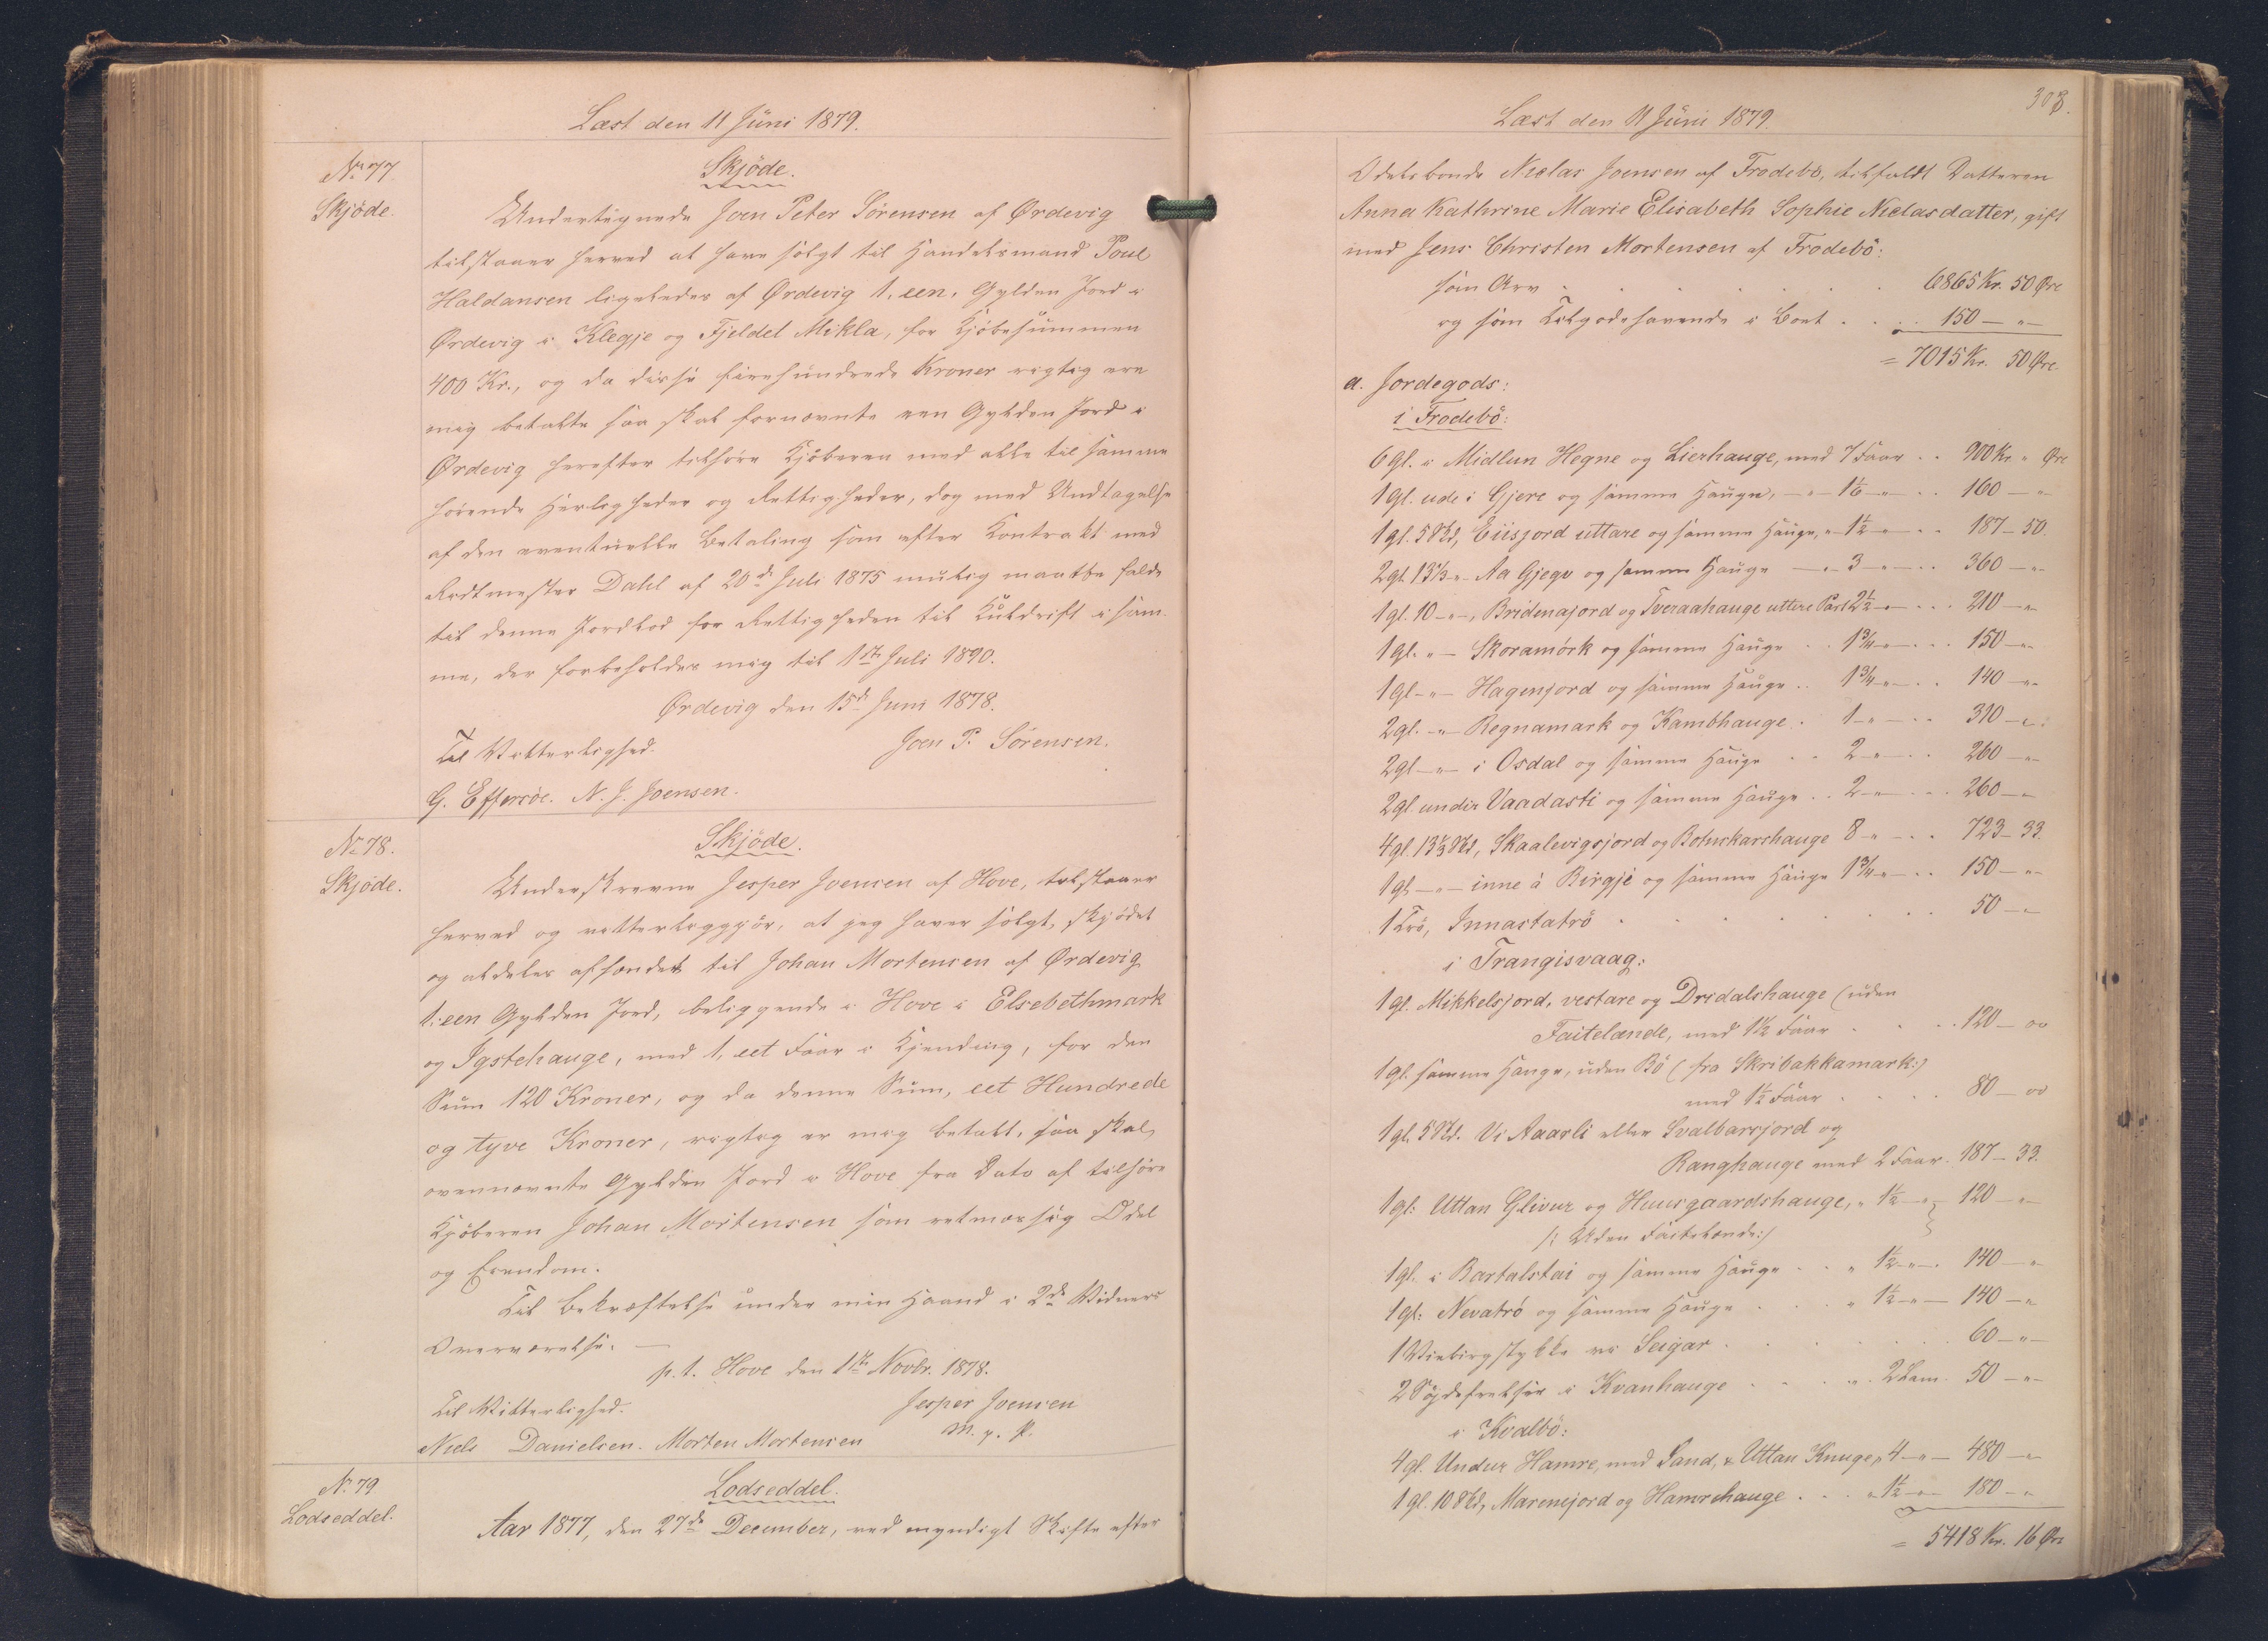 Læst den 11 Juni 1879.
No 77.
Skjöde.
Skjöde.
Undertegnede Joen Peter Sörensen af Ørdevig
tilstaaer herved at have solgt til Handelsmand Poul
Haldansen ligeledes af Ørdevig 1, een, Gylden Jord i
Ørdevig i Klegje og Fjeldet Mikla, for Kjöbesummen
400 Kr., og da disse firehundrede Kroner rigtig ere
mig betalte saa skal fornævnte een Gylden Jord i
Ørdevig herefter tilhöre Kjöberen med alle til samme
hörende Herligheder og Rettigheder, dog med Undtagelse
af den eventuelle Betaling som efter Kontrakt med
Dahl af 20de Juli 1875 mulig maatte falde
til denne Jordlod for Rettigheden til Kuldrift i sam-
me, der forbeholdes mig til 1ste Juli 1890.
Ørdevig den 15de Juni 1878.
Til Vitterlighed.
Joen P. Sörensen.
G. Effersöe. N. J. Joensen.
No 78.
Skjöde.
Skjöde.
Underskrevne Jesper Joensen af Hove, tilstaaer
herved og vitterliggjör, at jeg haver solgt, skjödet
og aldeles afhændet til Johan Mortensen af Ørdevig
1: een Gylden Jord, beliggende i Hove i Elsebethmark
og Igstehauge, med 1, eet Faar i Kjending, for den
Sum 120 Kroner, og da denne Sum, eet Hundrede
og tyve Kroner, rigtig er mig betalt, saa skal
ovennævnte Gylden Jord i Hove fra Dato af tilhöre
Kjöberen Johan Mortensen som retmæssig Odel
og Eiendom.
Til Bekræftelse under min Haand i 2de Vidners
Overværelse. —
p. t. Hove den 1te Novbr. 1878.
Til Vitterlighed.
Jesper Joensen
Niels Danielsen. Morten Mortensen
m. p.
No 79
Lodseddel.
Lodseddel.
Aar 1877, den 27de December, ved myndigt Skifte efter
303.
Læst den 11 Juni 1879.
Odelsbonde Niclas Joensen af Frodebö, tilfaldt Datteren
Anna Kathrine Marie Elisabeth Sophie Niclasdatter, gift
med Jens Christen Mortensen af Frodebö:
som Arv . . . . . 6865 Kr. 50 Øre
og som Tilgodehavende i Boet . . . 150 — " —
= 7015 Kr. 50 Øre.
a. Jordegods:
i Frodebö:
6 gl. i Midlun Hegne og Lierhauge, med 7 Faar . . 900 Kr. " Øre
1 gl. ude i Gjere og samme Hauge, — " — 1⅙ — " — . . 160 — "
1 gl. 5 Skd, Eiisjord uttare og samme Hauge, " 1½ " — . . 187 — 50.
2 gl. 13⅓ " Aa Gjegv og samme Hauge — " 3 — " — . . 360 — " —
1 gl. 10 — " —, Bridenajord og Tveraahauge uttere Part 2½ — " — . . 210 — " —
1 gl. " — Skoramörk og samme Hauge . . 1¾ — " — . . 150 — " —
1 gl — " — Hagenjord og samme Hauge . . 1¾ — " — . . 140 — " —
2 gl. — " — Regnamark og Kambhauge . 1 — " — . . 310 — " —
2 gl — " — i Osdal og samme Hauge . . 2 — " — . . 260 — " —
2 gl under Vaadasti og samme Hauge . . 2 — " — . . 260 — " —
4 gl. 13⅓ Skd, Skaalevigsjord og Botnskarshauge 8 — " — . . 723 — 33.
1 gl — " — inne á Birgjé og samme Hauge 1¾ — " — . . 150 — " —
1 Trö, Innastatrö . . . . . . 50 — " —
i Trangisvaag:
1 gl. Mikkelsjord, vestare og Dridalshauge (uden
Faitelænde, med 1½ Faar . . . . 120 — 00
1 gl. samme Hauge, uden Bö (fra Skribakkamark:)
med 1½ Faar . . . . 80 — 00
1 gl. 5 Skd. Vi Aaarli eller Svalbarsjord og
Ranghauge med 2 Faar. 187 — 33.
1 gl: Uttan Glivur og Huusgaardshauge, " 1½ — " — } 120 — " —
/: Uden Faitelænde:/
1 gl. i Bartalstai og samme Hauge . . " 1½ — " — . 140 — "
1 gl: Nevatrö og samme Hauge . . . " 1½ — " — 140 — "
1 stykke vi Seigar . . . . . . 60 — " —
2 i Kvanhauge . . . " 2 Lam. 50 — " —
i Kvalbö:
4 gl. Undur Hamre, med Sand, & Uttan Knuge, " 4 — " — 480 — " —
1 gl. 10 Skd, Marenejord og Hamrehauge . . . " 1½ — " — 180 — "
= 5418 Kr. 16 Øre